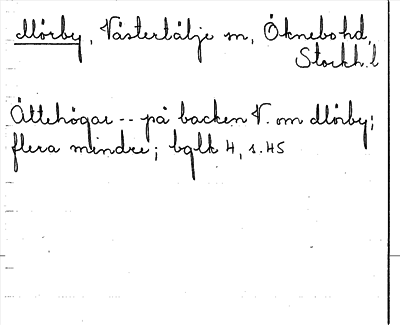 Mörby, Västertälje sn, Öknebo hd,
Stockh.l
Ättehögar -- på backen V. om Mörby;
flera mindre; bglk 4, s.45